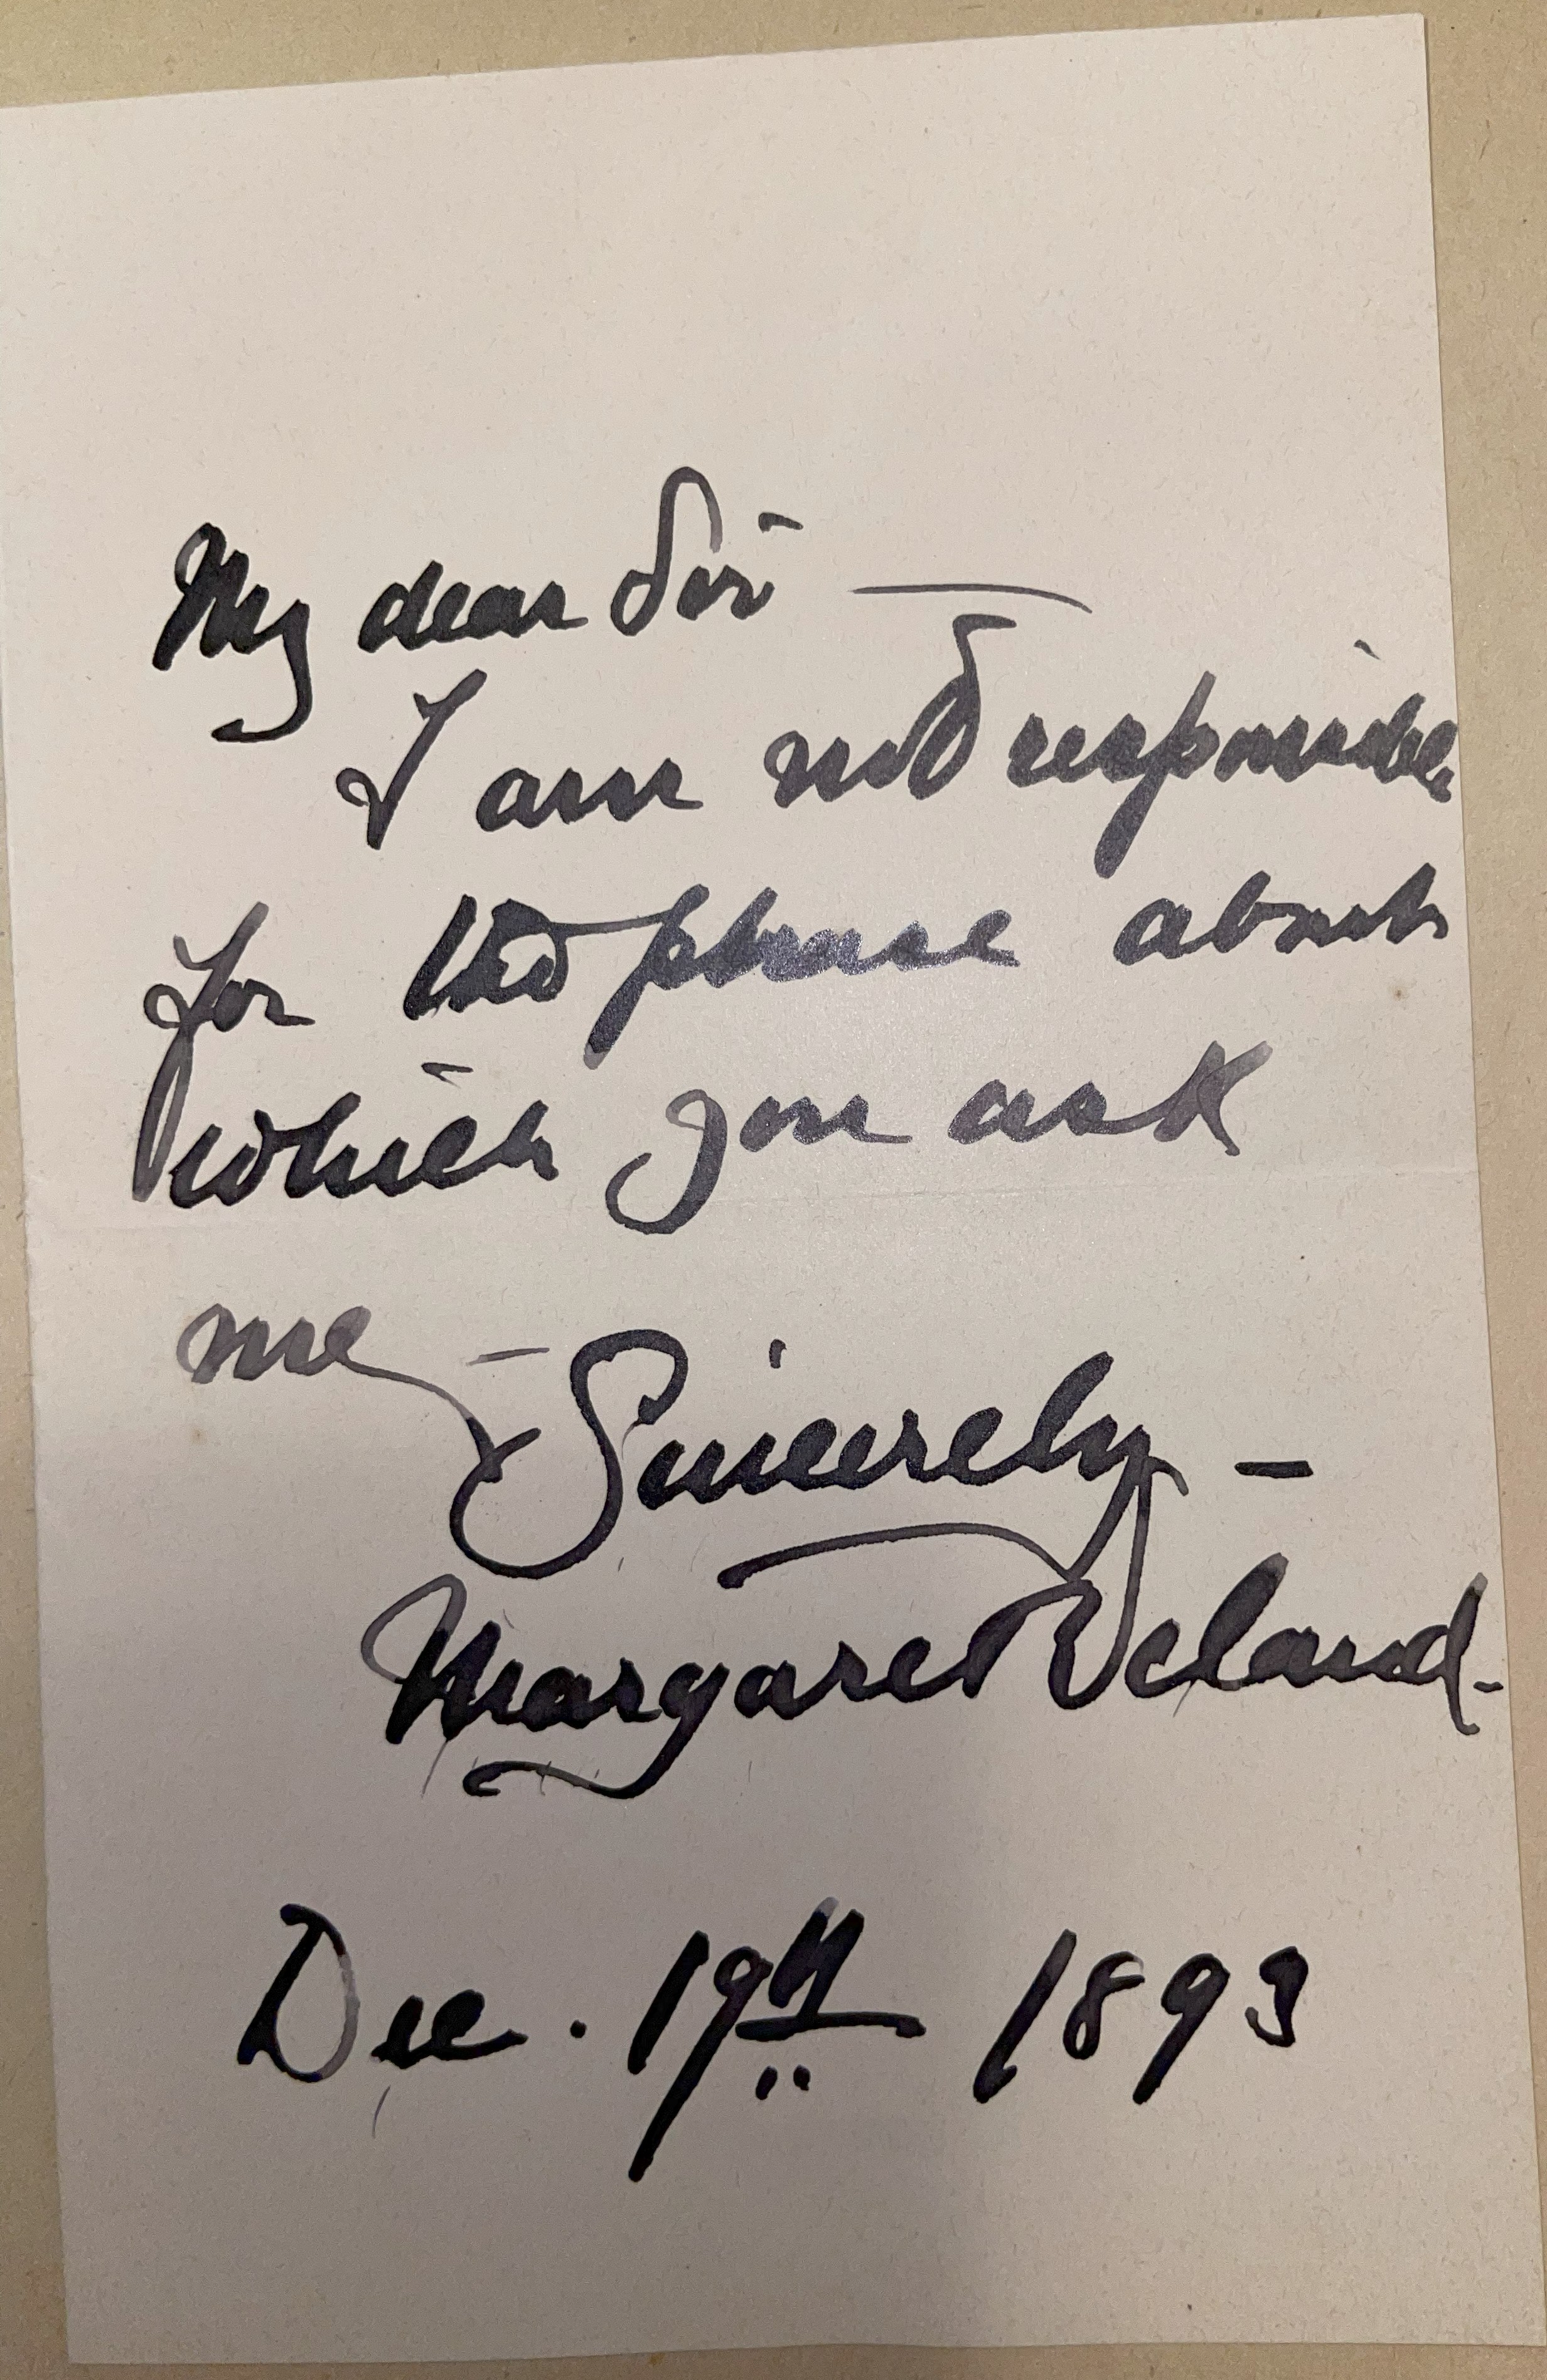 My dear Sir —
I am not responsible
for the phrase about
which you ask
me —
Sincerely —
Margaret Deland.
Dec. 19th 1893